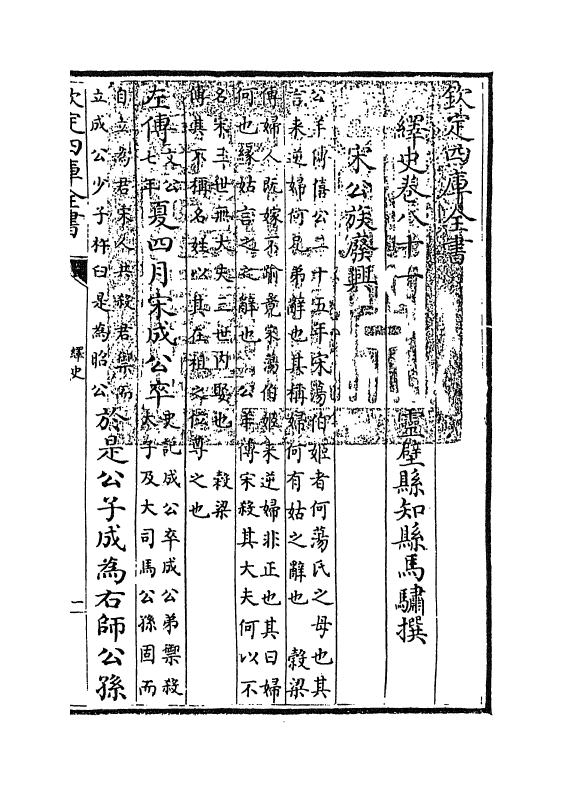 欽定四庫全書
繹史卷八十一　靈壁縣知縣馬驌撰
宋公族廢興
公羊傳僖公二十五年宋蕩伯姬者何蕩氏之母也其
言来逆婦何兄弟辭也其稱婦何有姑之辭也　穀梁
傳婦人既嫁不踰竟宋蕩伯姬来逆婦非正也其曰婦
何也緣姑言之之辭也　公羊傳宋殺其大夫何以不
名宋三世無大夫三世内娶也　穀梁
傳其不稱名姓以其在祖之位尊之也
左傳文公七年夏四月宋成公卒史記成公卒成公弟禦殺太子及大司馬公孫固而
自立為君宋人共殺君禦而立成公少子杵臼是為昭公於是公子成為右師公孫
欽定四庫全書
繹史